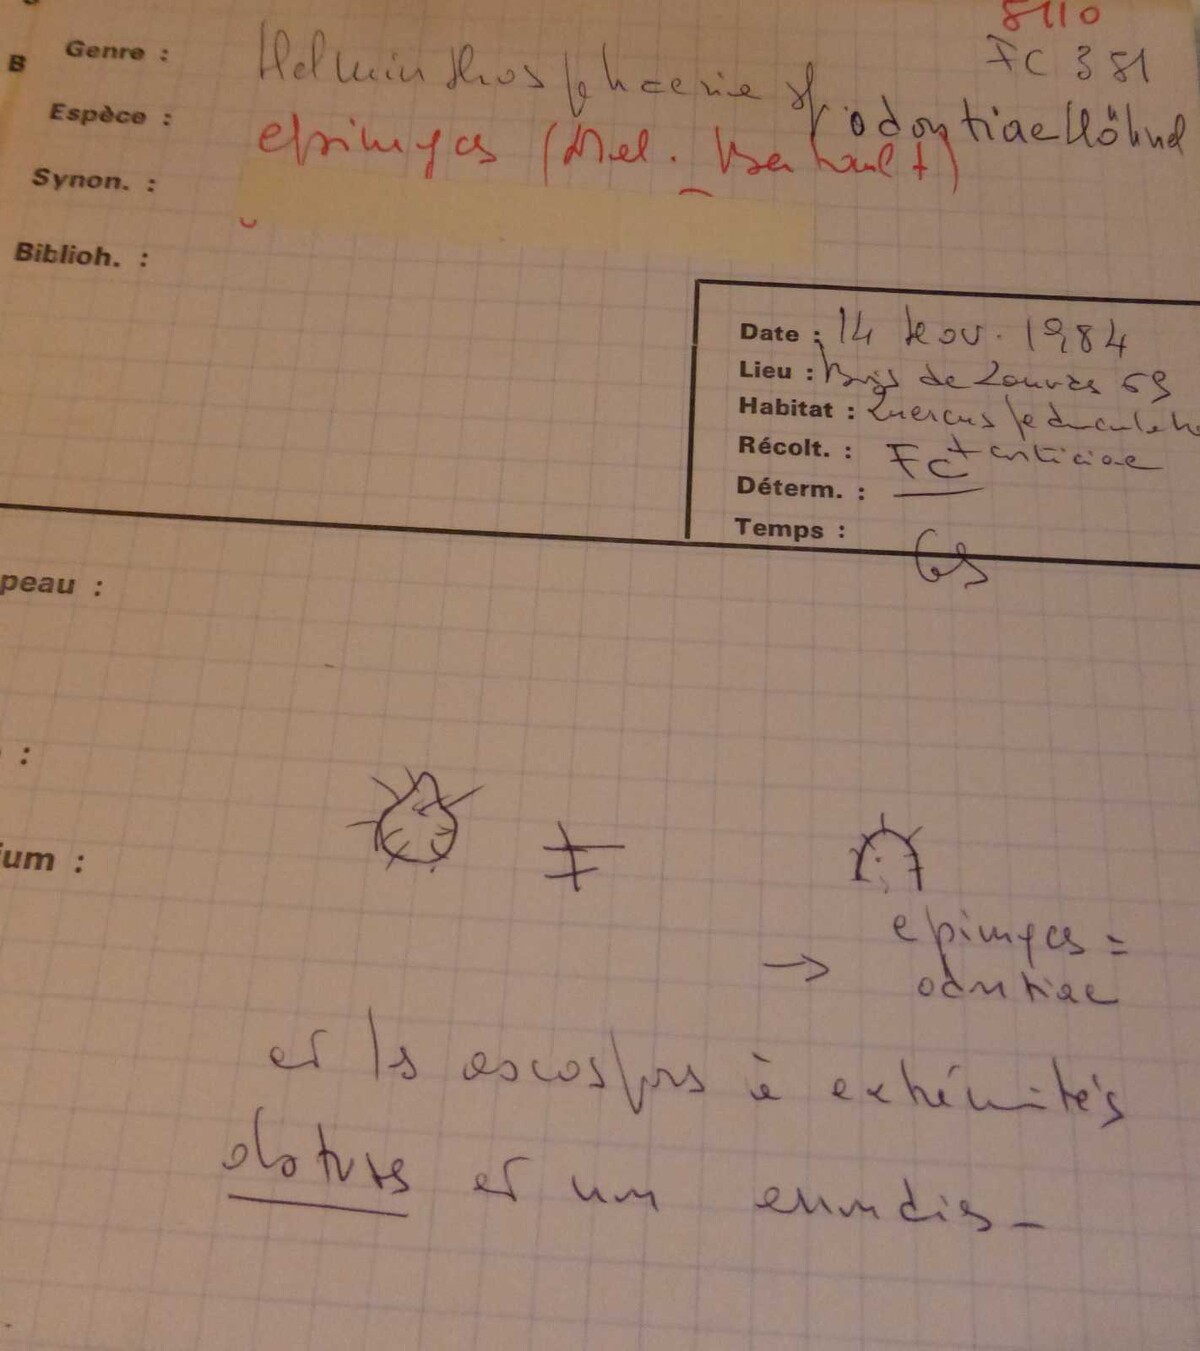 8110
FC 381
B Genre : Helminthosphaeria sp. odontiae Höhnel
Espèce : epimyces (Mel. Berthault)
Synon. :
Biblioh. :
Date : 14 Nov. 1984
Lieu : Bois de Louvres 69
Habitat : Quercus pedunculata
+ corticiae
Récolt. : FC
Déterm. : —
Temps :
GS
peau :
:
≠
ium :
epimyces =
→ odontiae
et ls ascospors à extrémités
obtuses et non arrondies -